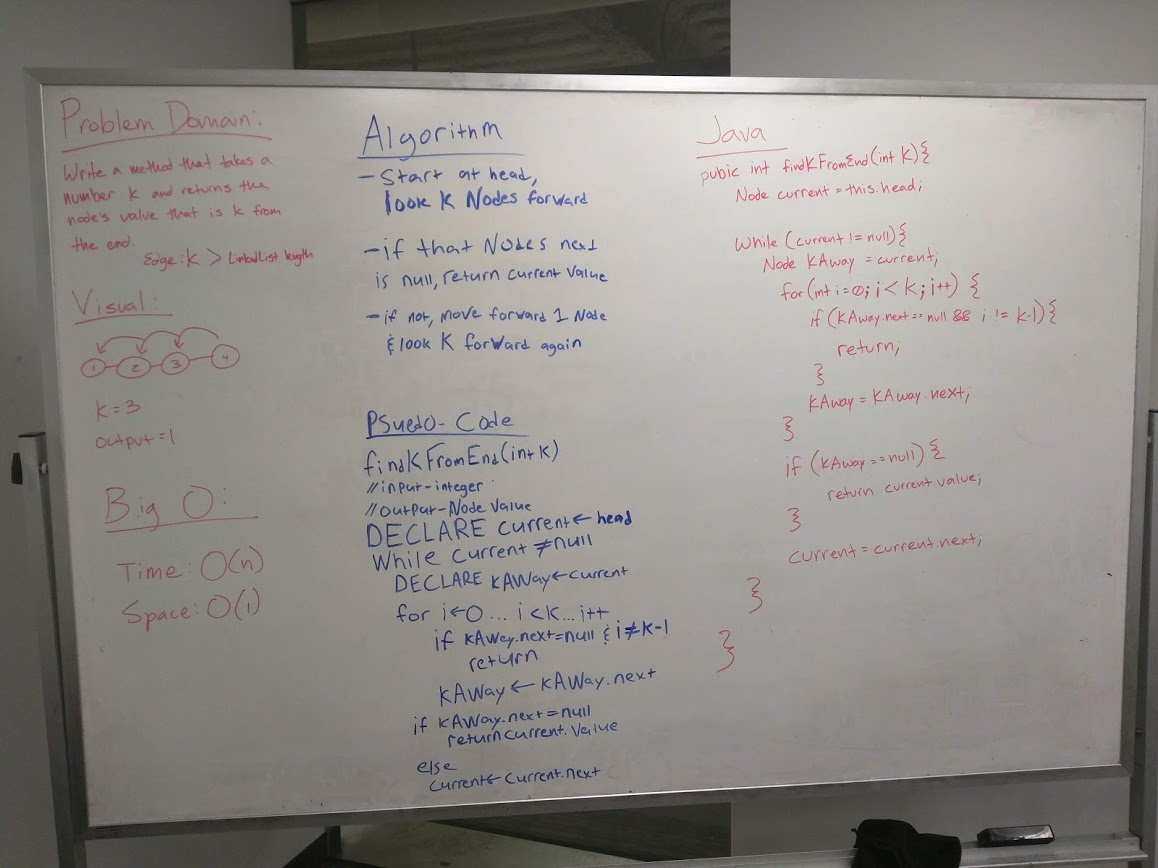 Problem Domain:
Write a method that takes a
number k and returns the
node's value that is k from
the end.
Edge: k > LinkedList length
Visual:
1 2 3 4
k = 3
output = 1
Big O:
Time: O(n)
Space: O(1)
Algorithm
- Start at head,
look K Nodes forward
- if that Nodes next
is null, return current value
- if not, move forward 1 Node
& look K forward again
Psuedo-Code
findKFromEnd(int k)
//input-integer
//output-Node Value
DECLARE current ← head
While current ≠ null
DECLARE kAWay ← current
for i ← 0 ... i < k ... i++
if kAWay.next = null & i ≠ k-1
return
kAWay ← kAWay.next
if kAWay.next = null
return current.value
else
current ← current.next
Java
pubic int findKFromEnd(int k){
Node current = this.head;
while (current != null){
Node KAway = current;
for (int i = 0; i < k; i++) {
if (KAway.next == null && i != k-1){
return;
}
KAway = KAway.next;
}
if (KAway == null){
return current.value;
}
current = current.next;
}
}